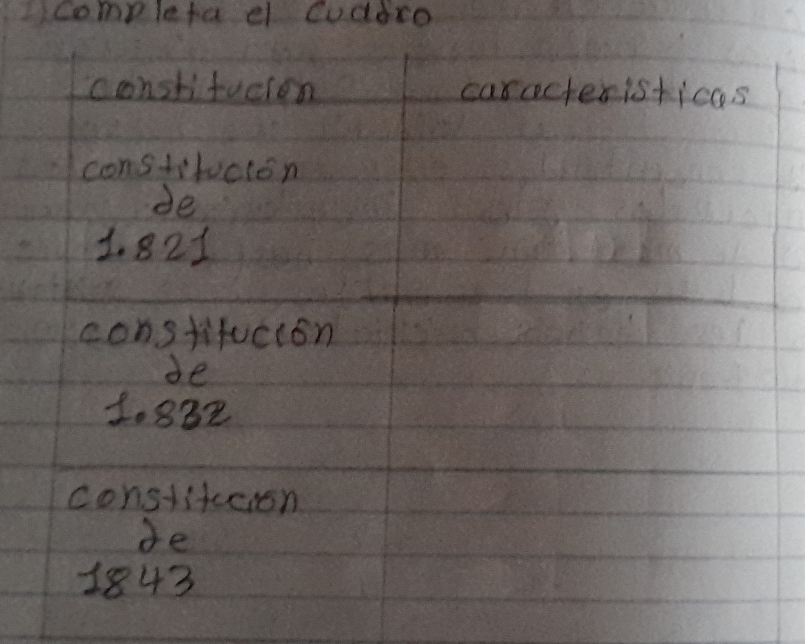 1) completa el cuadro
constitución características
constitución
de
1.821
constitución
de
1.832
constitución
de
1843